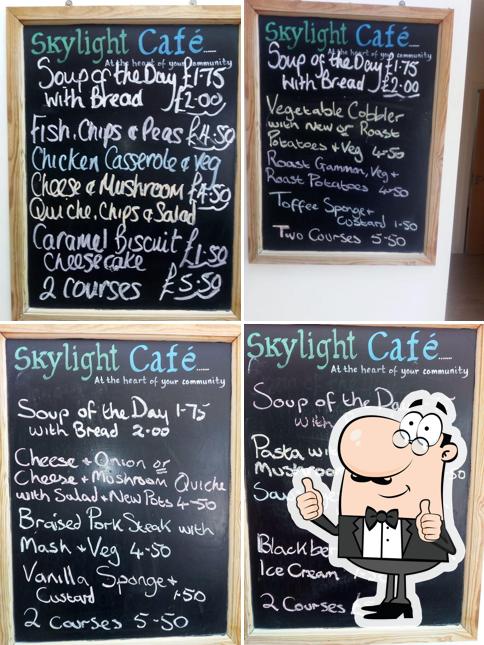 Skylight Café......
At the heart of your community
Soup of the Day £1.75
with Bread £2.00
Fish, Chips & Peas £4.50
Chicken Casserole & Veg
Cheese & Mushroom £4.50
Quiche, Chips & Salad
Caramel Biscuit £1.50
cheesecake
2 courses £5.50
Skylight Café......
At the heart of your community
Soup of the Day £1.75
with Bread £2.00
Vegetable Cobbler
with New or Roast
Potatoes & Veg 4-50
Roast Gammon, Veg &
Roast Potatoes 4-50
Toffee Sponge &
Custard 1-50
Two Courses 5-50
Skylight Café......
At the heart of your community
Soup of the Day 1-75
with Bread 2-00
Cheese & Onion or
Cheese & Mushroom Quiche
with Salad & New Pots 4-50
Braised Pork Steak with
Mash & Veg 4-50
Vanilla Sponge &
Custard 1-50
2 Courses 5-50
Skylight Café......
At the heart of your community
Soup of the
with
Pasta
Ice Cream
2 Courses